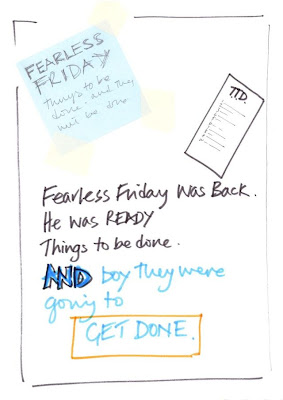 FEARLESS
FRIDAY
things to be
done. and they
will be done.
TTD.
Fearless Friday Was Back.
He was READY
Things to be done.
AND boy they were
going to
GET DONE.